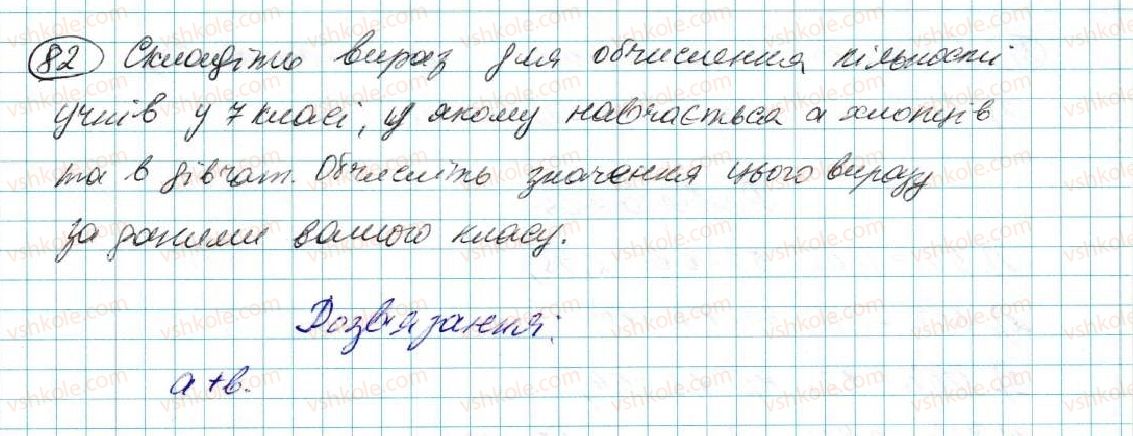 82 Складіть вираз для обчислення кількості
учнів у 7 класі, у якому навчається а хлопців
та в дівчат. Обчисліть значення цього виразу
за даними вашого класу.
Розв'язання:
а + в.